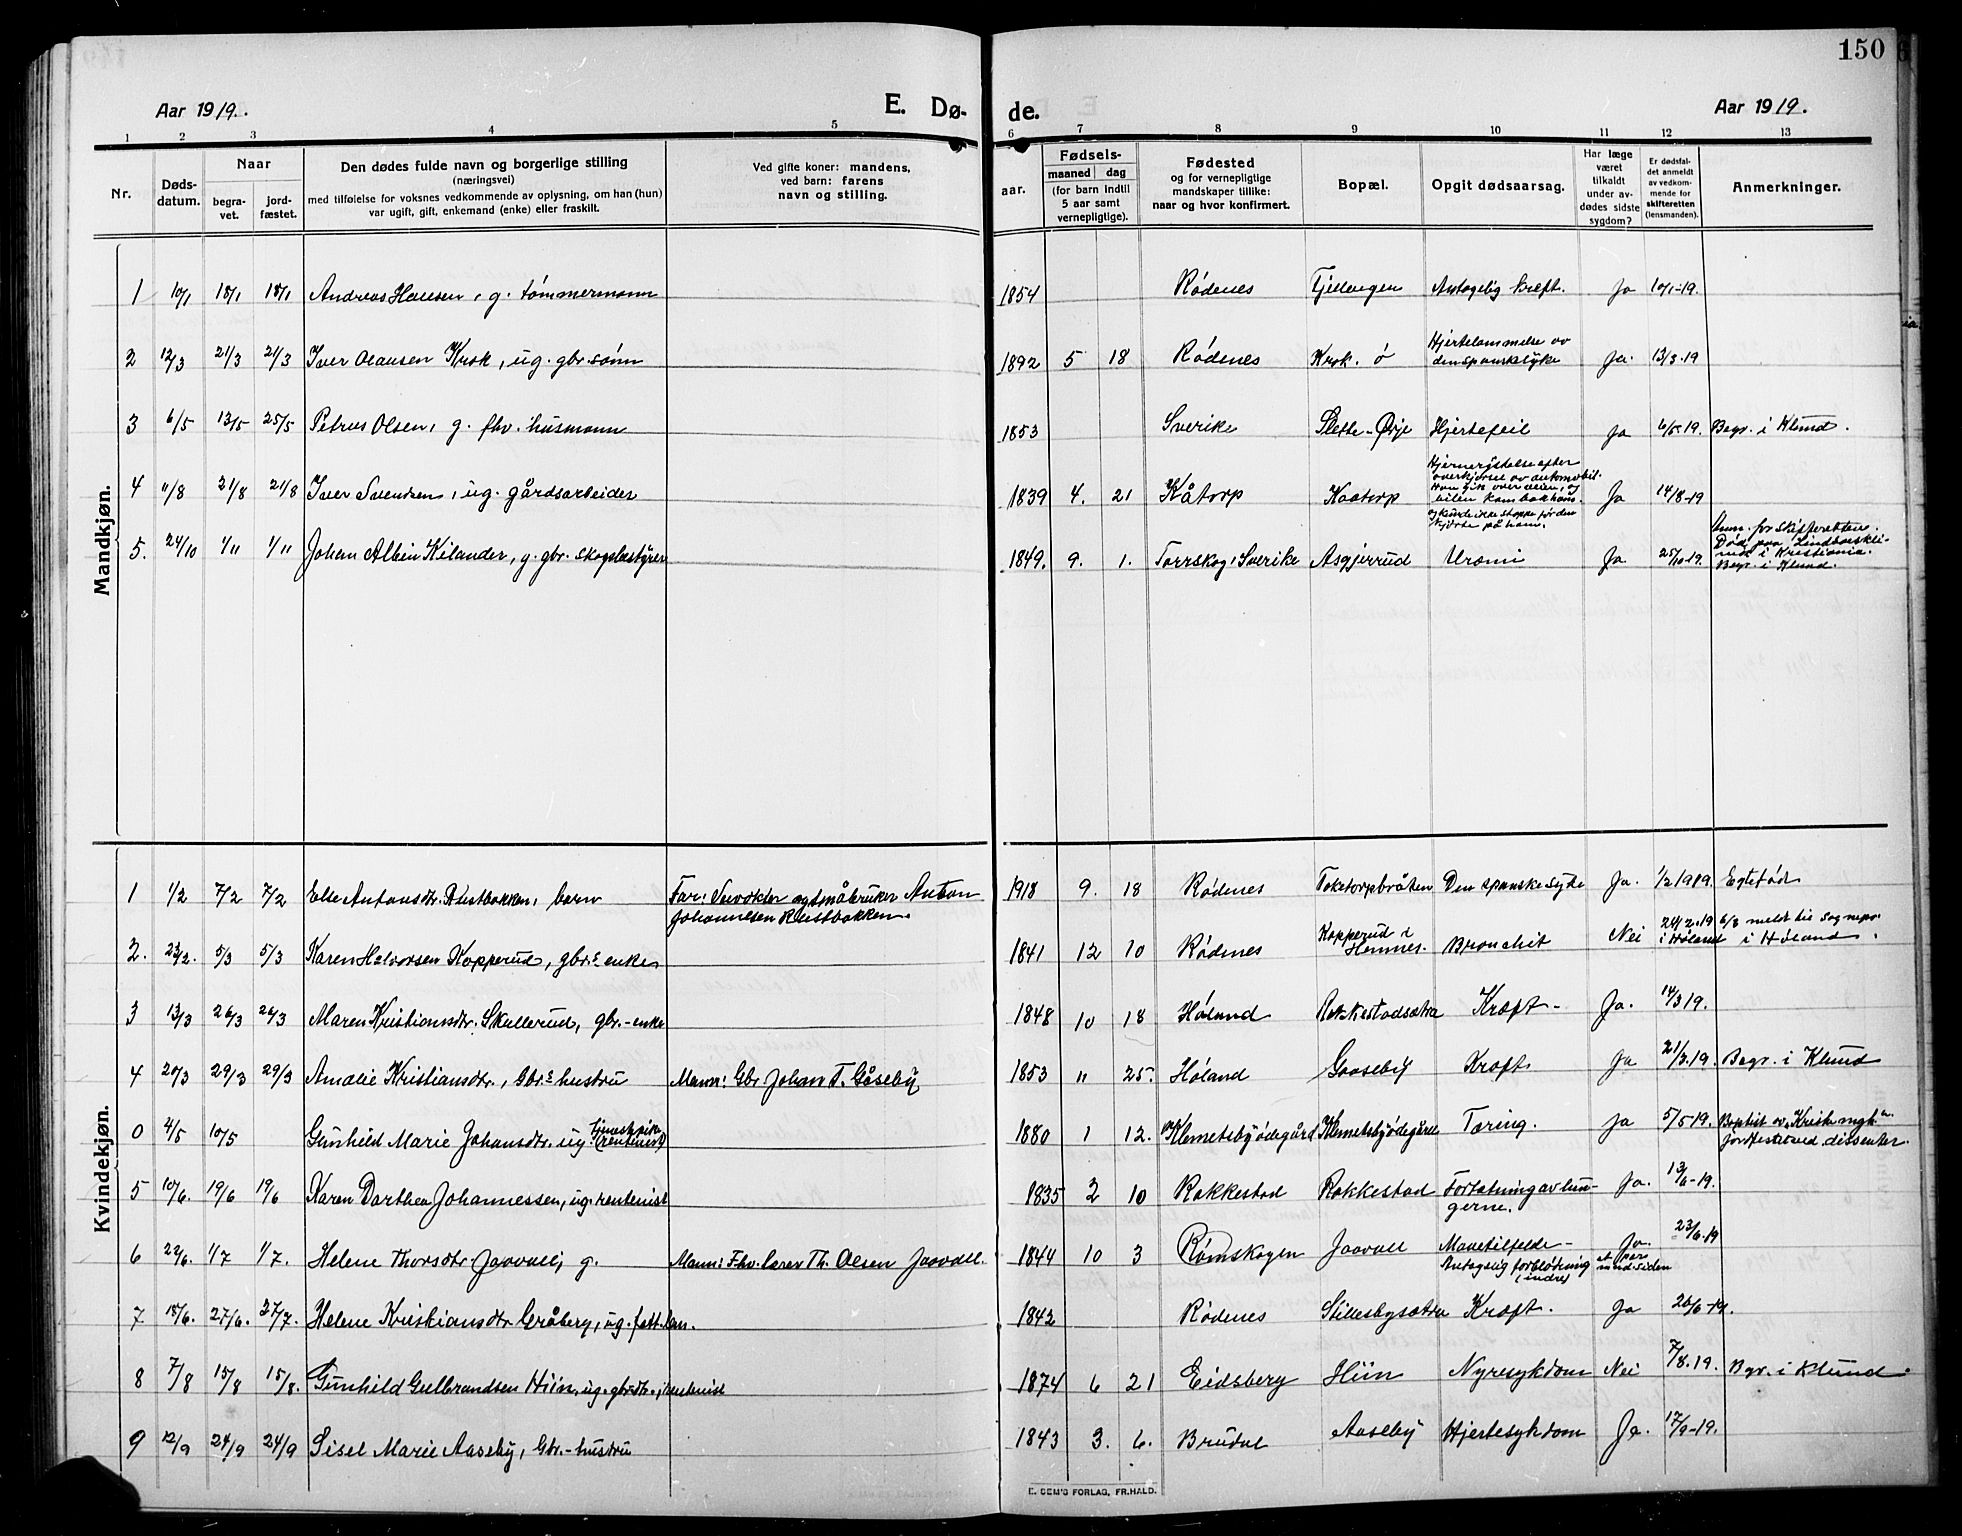 150
Aar 1919.
E. Dø-
de.
Aar 1919.
1 2 3 4 5 6 7 8 9 10 11 12 13
Nr.
Døds-
datum.
Naar
begra-
vet.
jord-
fæstet.
Den dødes fulde navn og borgerlige stilling
(næringsvei)
med tilføielse for voksnes vedkommende av oplysning, om han (hun)
var ugift, gift, enkemand (enke) eller fraskilt.
Ved gifte koner: mandens,
ved barn: farens
navn og stilling.
aar.
Fødsels-
maaned dag
(for barn indtil
5 aar samt
vernepligtige).
Fødested
og for vernepligtige
mandskaper tillike:
naar og hvor konfirmert.
Bopæl.
Opgit dødsaarsag.
Har læge
været
tilkaldt
under av-
dødes sidste
sygdom?
Er dødsfal-
det anmeldt
av vedkom-
mende for
skifteretten
(lensmanden).
Anmerkninger.
Mandkjøn.
1 10/1 18/1 18/1 Andreas Hansen, g. tømmermann 1854 Rødenes Antagelig kreft. Ja 10/1-19.
2 12/3 21/3 21/3 Iver Olausen Krok, ug. gbr. sønn 1892 5 18 Rødenes Krok. ø Hjertelammelse av
den spanske syke Ja. 13/3-19
3 6/5 13/5 25/5 Petrus Olsen, g. fhv. husmann 1853 Sverike Slette-Ørje Hjertefeil Ja 6/5-19. Begr. i Klund.
4 11/8 21/8 21/8 Iver Svendsen, ug. gårdsarbeider 1839 4. 21 Kåtorp Kaatorp Hjernerystelse efter
overkjørsel av automobil.
Han gik over veien, og
bilen kom bak ham
og kunde ikke stoppe før den
kjørte på ham. Ja 14/8-19
5. 24/10 1/11 1/11 Johan Albin Kilander, g. gbr. skogbestyrer 1849. 9. 1. Torrskog, Sverike Asgjerrud Uræmi Ja 25/10-19. Anm. for skifteretten.
Død paa
i Kristiania.
Begr. i Klund.
Kvindekjøn.
1 1/2 7/2 7/2 Else Antonsdtr. Kustbakken, barn Far: Snekker og småbruker Anton
Johannesen Kustbakken. 1918 9. 18 Rødenes Taketorpbråten Den spanske syke Ja. 1/2 1919. Egtefødt
2. 23/2. 5/3 5/3 Karen Halvorsen Kopperud, gbr.s enke 1841 12 10 Rødenes Kopperud i
Hemnes. Bronchit Nei 24/2.19 6/3 meldt til sognepr.
i Høland i Høland.
3 13/3 26/3 26/3 Maren Kristiansdtr. Skullerud, gbr.-enke 1848 10 18 Høland Rakkestadsætra Kræft- Ja. 14/3 19.
4 20/3 29/3 29/3 Amalie Kristiansdtr., Gbr.s hustru Mann: Gbr Johan T. Gåseby 1853 " 25. Høland Gaaseby Kræft Ja 21/3.19. Begr. i Klund
0 4/5 10/5 Gunhild Marie Johansdtr. ug. tjenestpik
(rentenist) 1880 1 12. Klemetsbyødegård Klemetsbyødegård Tæring. Ja 5/5-19. Baptist av Kristi mgh.
Jordfæstet ved dissenter.
5 10/6. 19/6 19/6 Karen Dorthea Johannessen, ug. rentenist 1835 2 10 Rakkestad Rakkestad Forfatning av lun-
gerne. Ja. 13/6-19.
6 22/6. 1/7 1/7. Helene Thorsdtr Jaavall, g. Mann: Fhv. lærer Th. Olsen Jaavall. 1844 10 3 Rømskogen Jaavall Mavetilfelde-
Antagelig forblødning
(indre) Ja.
et par
mnd siden 23/6-19
7 18/6. 27/6. 27/7. Helene Kristiansdtr Gråberg, ug. fatt.lem. 1842 Rødenes Stillesbysætra Kræft. Ja 26/6-19.
8 7/8 15/8 15/8. Gunhild Gulbrandsen Hiin, ug. gbr-dtr., rentenist 1874 6 21 Eidsberg Hiin Nyresykdom Nei 7/8.19. Bgr. i Klund.
9 12/9 24/9 24/9 Sisel Marie Aaseby, Gbr.-hustru 1843 3. 6. Brudal Aaseby Hjertesykdom Ja. 17/9-19.
E. SEM'S FORLAG, FR.HALD.